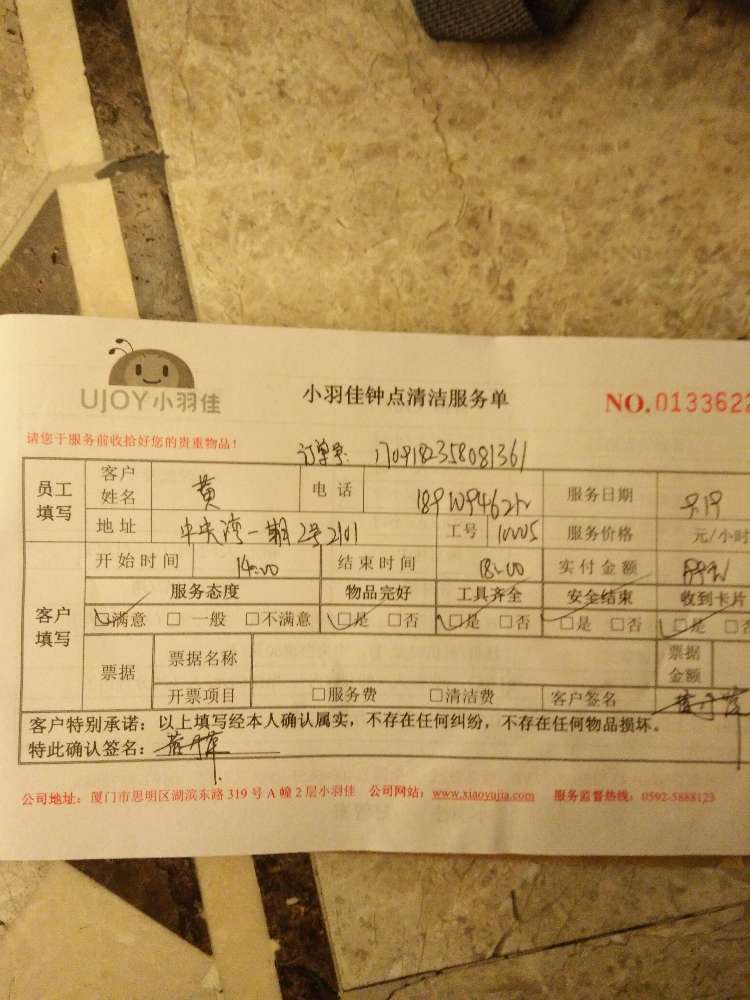 UJOY小羽佳
小羽佳钟点清洁服务单
NO.0133622
请您于服务前收拾好您的贵重物品！
订单号: 1709182358081361
员工填写 客户姓名 黄 电话 服务日期
地址 中央湾一期2号2101 工号 10005 服务价格 元/小时
客户填写 开始时间 14:00 结束时间 18:00 实付金额
服务态度 物品完好 工具齐全 安全结束 收到卡片
☑满意 □ 一般 □不满意 ☑是 □否 ☑是 □否 ☑是 □否 ☑是
票据 票据名称 票据金额
开票项目 □服务费 □清洁费 客户签名
客户特别承诺：以上填写经本人确认属实，不存在任何纠纷，不存在任何物品损坏。
特此确认签名：
公司地址：厦门市思明区湖滨东路 319 号 A 幢 2 层小羽佳 公司网站：www.xiaoyujia.com 服务监督热线：0592-5888123